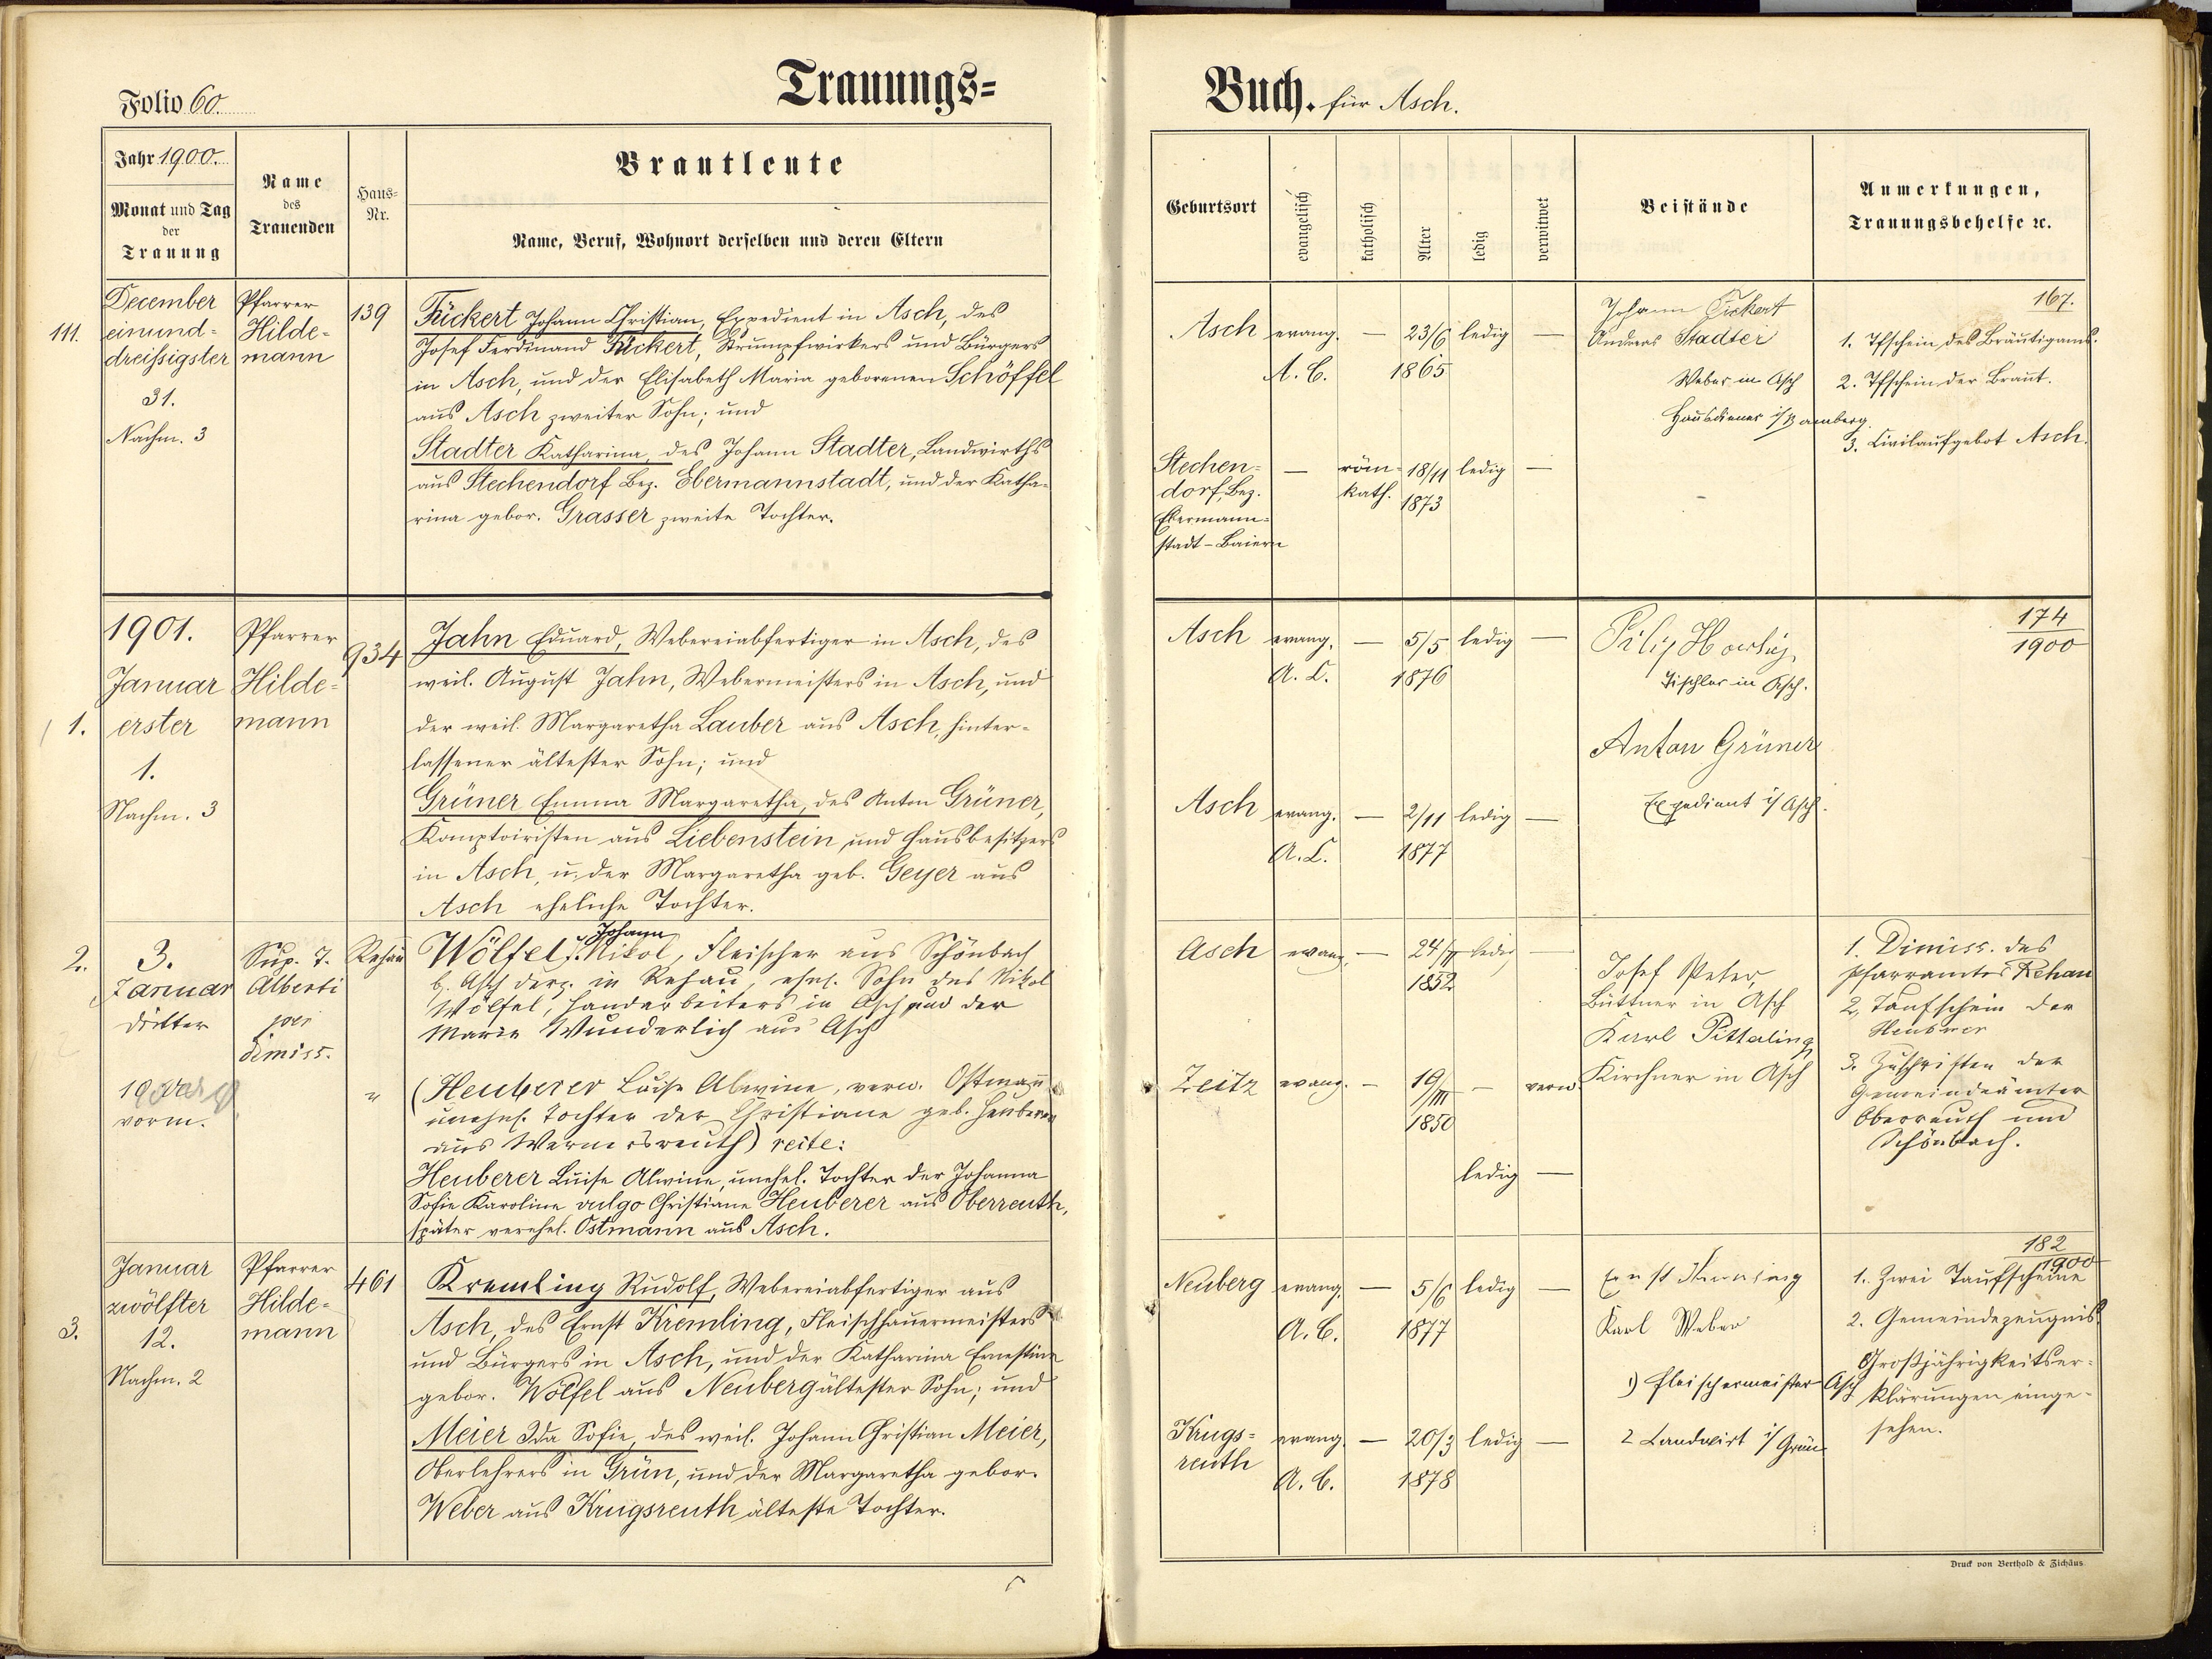 Folio 60.
Trauungs=
Jahr 1900.
Monat und Tag
der
Trauung
Name
des
Trauenden
Haus=
Nr.
Brautleute
Name, Beruf, Wohnort derselben und deren Eltern
111.
December
einund=
dreissigster
31.
Nachm. 3
Pfarrer
Hilde=
mann
139
Fückert Johann Christian, Expedient in Asch, des
Josef Ferdinand Fückert, Strumpfwirkers und Bürgers
in Asch, und der Elisabeth Maria geborenen Schöffel
aus Asch zweiter Sohn; und
Stadter Katharina, des Johann Stadter, Landwirths
aus Stechendorf Bez. Ebermannstadt, und der Katha=
rina gebor. Grasser zweite Tochter.
1.
1901.
Januar
erster
1.
Nachm. 3
Pfarrer
Hilde=
mann
934
Jahn Eduard, Webereiabfertiger in Asch, des
weil. August Jahn, Webermeisters in Asch, und
der weil. Margaretha Lauber aus Asch, hinter=
lassener ältester Sohn; und
Grüner Emma Margaretha, des Anton Grüner,
Komptoiristen aus Liebenstein, und Hausbesitzers
in Asch, u. der Margaretha geb. Geyer aus
Asch eheliche Tochter.
2.
3.
Januar
dritter
vorm.
Sup. T.
Alberti
per
dimiss.
Rehau
Johann
Wölfel, Nikol, Fleischer aus Schönbach
b. Asch derz. in Rehau, ehel. Sohn des Nikol
Wölfel, Handarbeiters in Asch und der
Maria Wunderlich aus Asch
"
(Heuberer Luise Alwine, verw. Ostmann
unehel. Tochter der Christiane geb. Heuberer
aus Wernersreuth) recte:
Heuberer Luise Alwine, unehel. Tochter der Johanna
Sofie Karoline vulgo Christiane Heuberer aus Oberreuth,
später verehel. Ostmann aus Asch.
3.
Januar
zwölfter
12.
Nachm. 2
Pfarrer
Hilde=
mann
461
Kremling Rudolf, Webereiabfertiger aus
Asch, des Ernst Kremling, Fleischhauermeisters
und Bürgers in Asch, und der Katharina Ernestine
gebor. Wölfel aus Neuberg ältester Sohn; und
Meier Ida Sofie, des weil. Johann Christian Meier,
Oberlehrers in Grün, und der Margaretha gebor.
Weber aus Krugsreuth älteste Tochter.
Buch. für Asch.
Geburtsort
evangelisch
katholisch
Alter
ledig
verwitwet
Beistände
Anmerkungen,
Trauungsbehelfe ec.
Asch evang. — 23/6 ledig —
A. C. 1865
Stechen=
dorf, Bez.
Ebermann=
stadt - Baiern
— röm= 18/11 ledig —
kath. 1873
Johann Fickert
Andreas Stadter
Weber in Asch
Hausdiener i/Bamberg.
167.
1. Tfschein des Bräutigams.
2. Tfschein der Braut.
3. Civilaufgebot Asch.
Asch evang. — 5/5 ledig —
A. C. 1876
Tischler in Asch.
Anton Grüner
Expedient i/ Asch.
174
1900
Asch evang. — 2/11 ledig —
A. C. 1877
Asch evang. — 24/ ledig —
1852
Josef Peter,
Büttner in Asch
Karl Pitterling
Kirchner in Asch
1. Dimiss. des
Pfarramtes Rehau
2, Taufschein der
Heuberer
3. Zuschriften der
Gemeindeämter
Oberreuth und
Schönbach.
Zeitz evang. — 19/III — verw.
1850
ledig —
Neuberg evang. — 5/6 ledig —
A. C. 1877
Ernst Kremling
Karl Weber
1) Fleischermeister Asch
2 Landwirt i/ Grün
182
1900
1. Zwei Taufscheine
2. Gemeindezeugnis.
Großjährigkeitser=
klärungen einge=
sehen.
Krugs=
reuth
evang. — 20/3 ledig —
A. C. 1878
Druck von Berthold & Zichäus